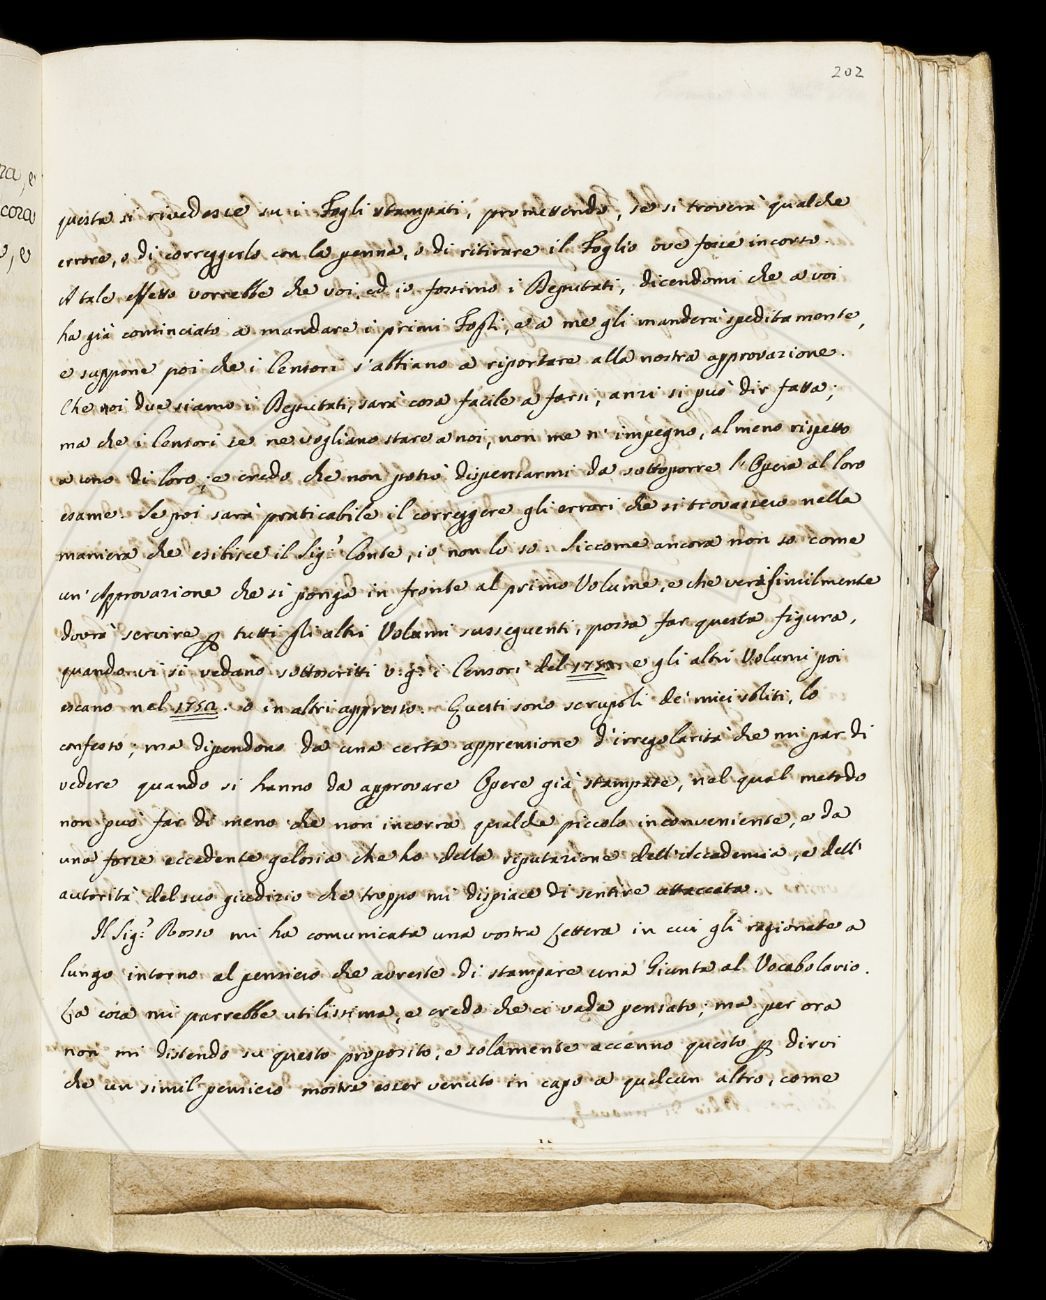 202
questa si rivedesse su i Fogli stampati, promettendo, se si troverà qualche
errore, o di correggerlo con la penna, o di ritirare il Foglio ove fosse incorso.
A tale effetto vorrebbe che voi, ed io fossimo i Deputati, dicendomi che a voi
ha già cominciato a mandare i primi Fogli, e a me gli manderà speditamente,
e suppone poi che i Censori s'abbiano a riportare alla nostra approvazione.
Che noi due siamo i Deputati, sarà cosa facile a farsi, anzi si può dir fatta;
ma che i Censori se ne vogliano stare a noi, non me n'impegno, almeno rispetto
a uno di loro; e credo che non potrò dispensarmi da sottoporre l'Opera al loro
esame. Se poi sarà praticabile il correggere gli errori che si trovassero nella
maniera che esibisce il Sig.r Conte, io non lo so. Siccome ancora non so come
un'Approvazione che si ponga in fronte al primo Volume, e che verisimilmente
dovrà servire p tutti gli altri Volumi susseguenti, possa far questa figura,
quando vi si vedano sottoscritti v.g. i Censori del 1751. e gli altri Volumi poi
escano nel 1752. o in altri appresso. Questi sono scrupoli de' miei soliti, lo
confesso; ma dipendono da una certa apprensione d'irregolarità che mi par di
vedere quando si hanno da approvare Opere già stampate, nel qual metodo
non può far di meno che non incorra qualche piccolo inconveniente, e da
una forse eccedente gelosia che ho della riputazione dell'Accademia, e dell'
autorità del suo giudizio che troppo mi dispiace di sentire attaccata.
Il Sig.r Rosso mi ha comunicata una vostra Lettera in cui gli ragionate a
lungo intorno al pensiero che avreste di stampare una Giunta al Vocabolario.
La cosa mi parrebbe utilissima, e credo che ci vada pensato; ma per ora
non mi distendo su questo proposito, e solamente accenno questo p dirvi
che un simil pensiero mostra esser venuto in capo a qualcun altro, come